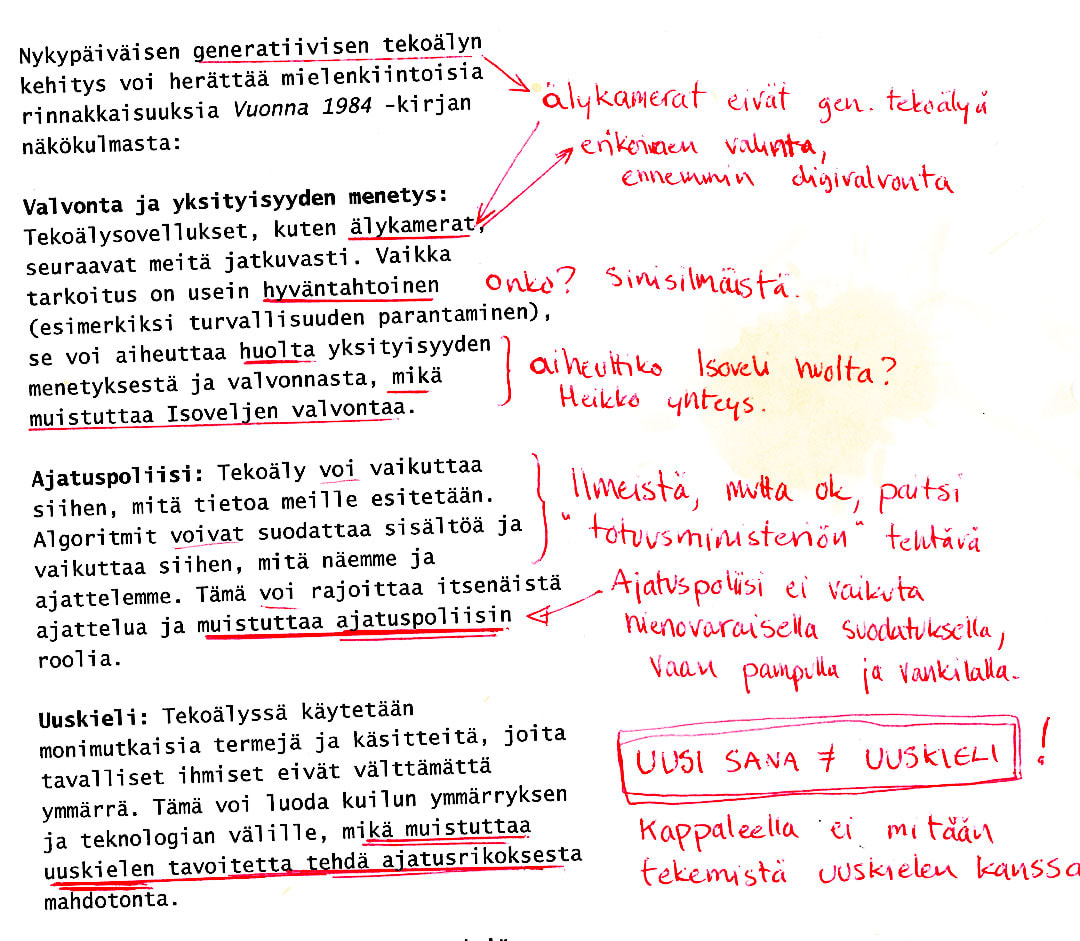 Nykypäiväisen generatiivisen tekoälyn
kehitys voi herättää mielenkiintoisia
rinnakkaisuuksia Vuonna 1984 -kirjan
näkökulmasta:
älykamerat eivät gen. tekoälyä
erikoinen valinta,
ennemmin digivalvonta
Valvonta ja yksityisyyden menetys:
Tekoälysovellukset, kuten älykamerat,
seuraavat meitä jatkuvasti. Vaikka
tarkoitus on usein hyväntahtoinen
(esimerkiksi turvallisuuden parantaminen),
se voi aiheuttaa huolta yksityisyyden
menetyksestä ja valvonnasta, mikä
muistuttaa Isoveljen valvontaa.
onko? Sinisilmäistä.
aiheuttiko Isoveli huolta?
Heikko yhteys.
Ajatuspoliisi: Tekoäly voi vaikuttaa
siihen, mitä tietoa meille esitetään.
Algoritmit voivat suodattaa sisältöä ja
vaikuttaa siihen, mitä näemme ja
ajattelemme. Tämä voi rajoittaa itsenäistä
ajattelua ja muistuttaa ajatuspoliisin
roolia.
Ilmeistä, mutta ok, paitsi
"totuusministeriön" tehtävä
Ajatuspoliisi ei vaikuta
hienovaraisella suodatuksella,
vaan pampulla ja vankilalla.
Uuskieli: Tekoälyssä käytetään
monimutkaisia termejä ja käsitteitä, joita
tavalliset ihmiset eivät välttämättä
ymmärrä. Tämä voi luoda kuilun ymmärryksen
ja teknologian välille, mikä muistuttaa
uuskielen tavoitetta tehdä ajatusrikoksesta
mahdotonta.
UUSI SANA ≠ UUSKIELI !
Kappaleella ei mitään
tekemistä uuskielen kanssa